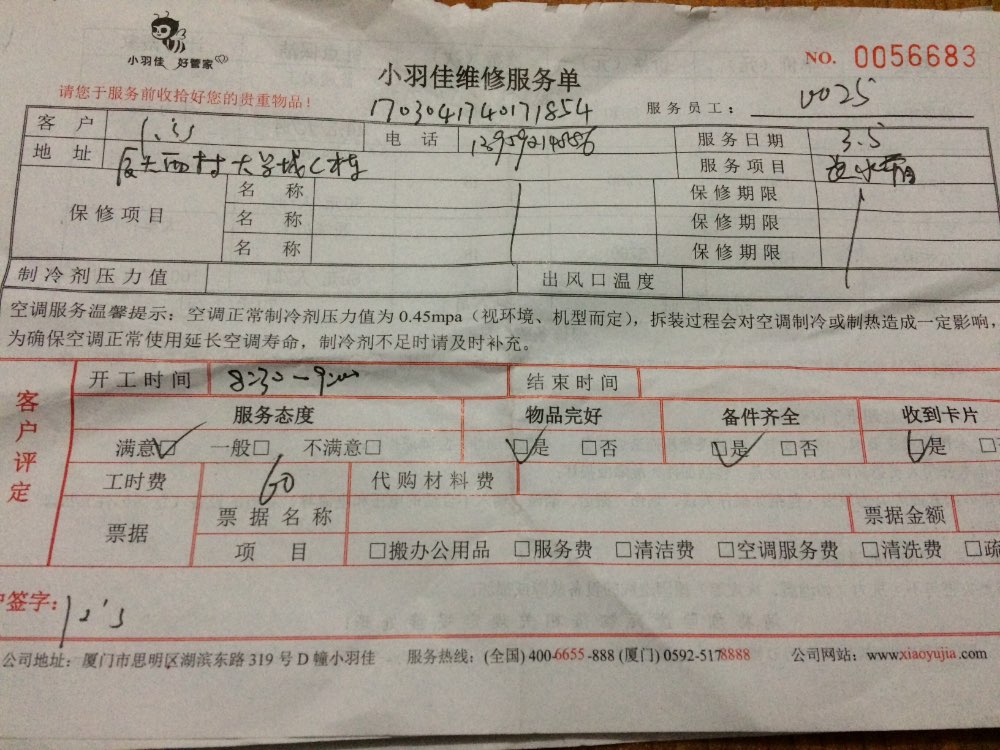 小羽佳 好管家
NO. 0056683
小羽佳维修服务单
请您于服务前收拾好您的贵重物品！
1703041740171854
服务员工： 0025
客 户
电 话
服务日期 3.5
地 址 西村大学城C栋
服务项目
保修项目
名 称 保修期限
名 称 保修期限
名 称 保修期限
制冷剂压力值 出风口温度
空调服务温馨提示：空调正常制冷剂压力值为 0.45mpa（视环境、机型而定），拆装过程会对空调制冷或制热造成一定影响，
为确保空调正常使用延长空调寿命，制冷剂不足时请及时补充。
客户评定
开工时间 8:30-9:00 结束时间
服务态度 物品完好 备件齐全 收到卡片
满意☑ 一般□ 不满意□ ☑是 □否 ☑是 □否 ☑是 □
工时费 60 代购材料费
票据 票据名称 票据金额
项 目 □搬办公用品 □服务费 □清洁费 □空调服务费 □清洗费 □疏
签字：
公司地址：厦门市思明区湖滨东路 319 号 D 幢小羽佳 服务热线：(全国) 400-6655-888 (厦门) 0592-5178888 公司网站：www.xiaoyujia.com